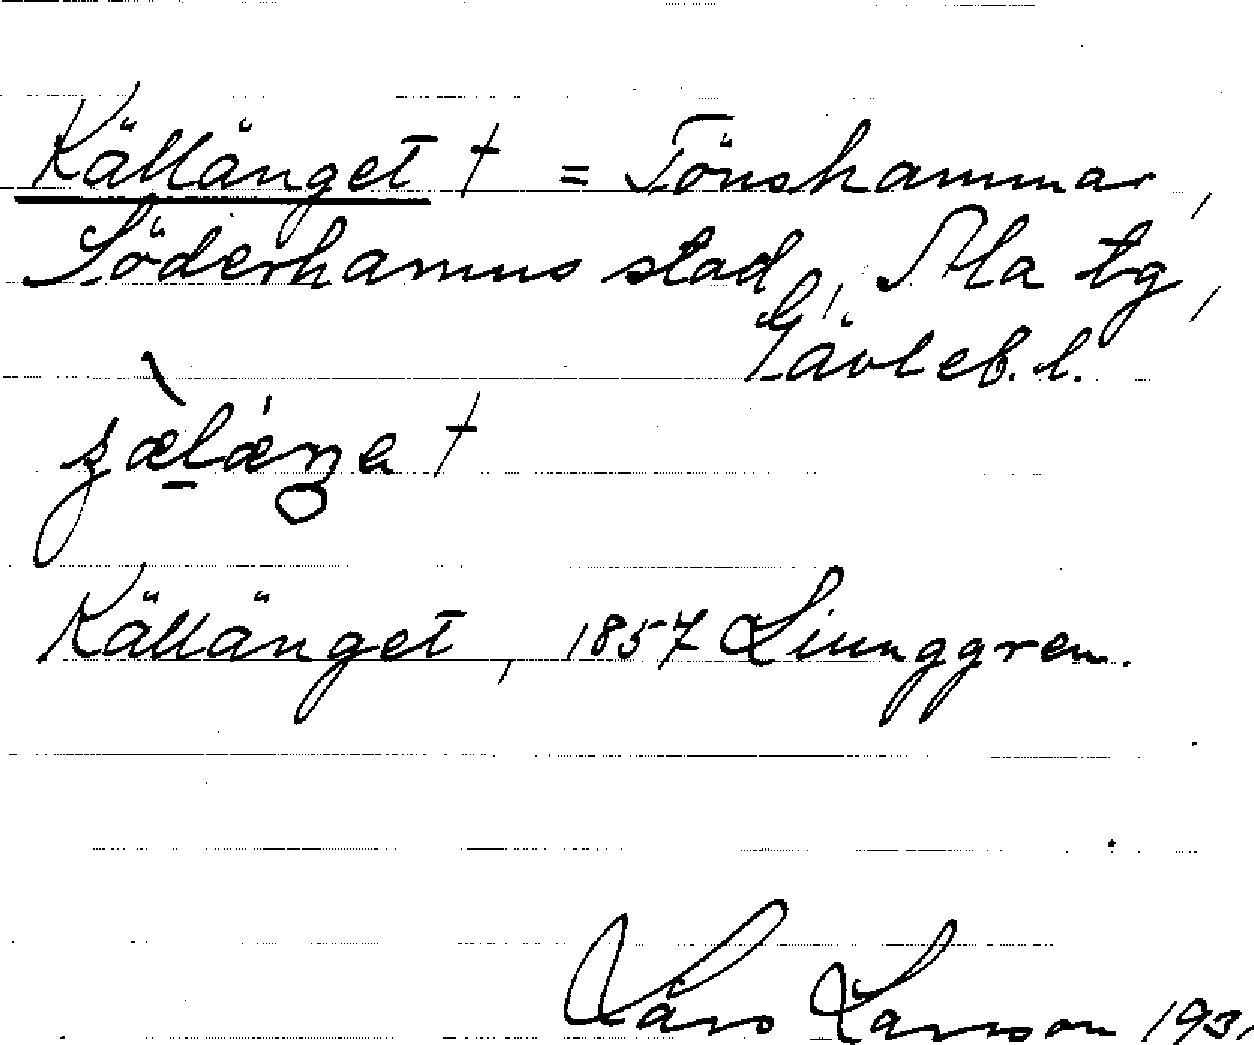 Källänget † = Tönshammar,
Söderhamns stad, Ala tg,
Gävleb. l.
Källänget, 1857 Ljunggren.
Lars Larsson 193